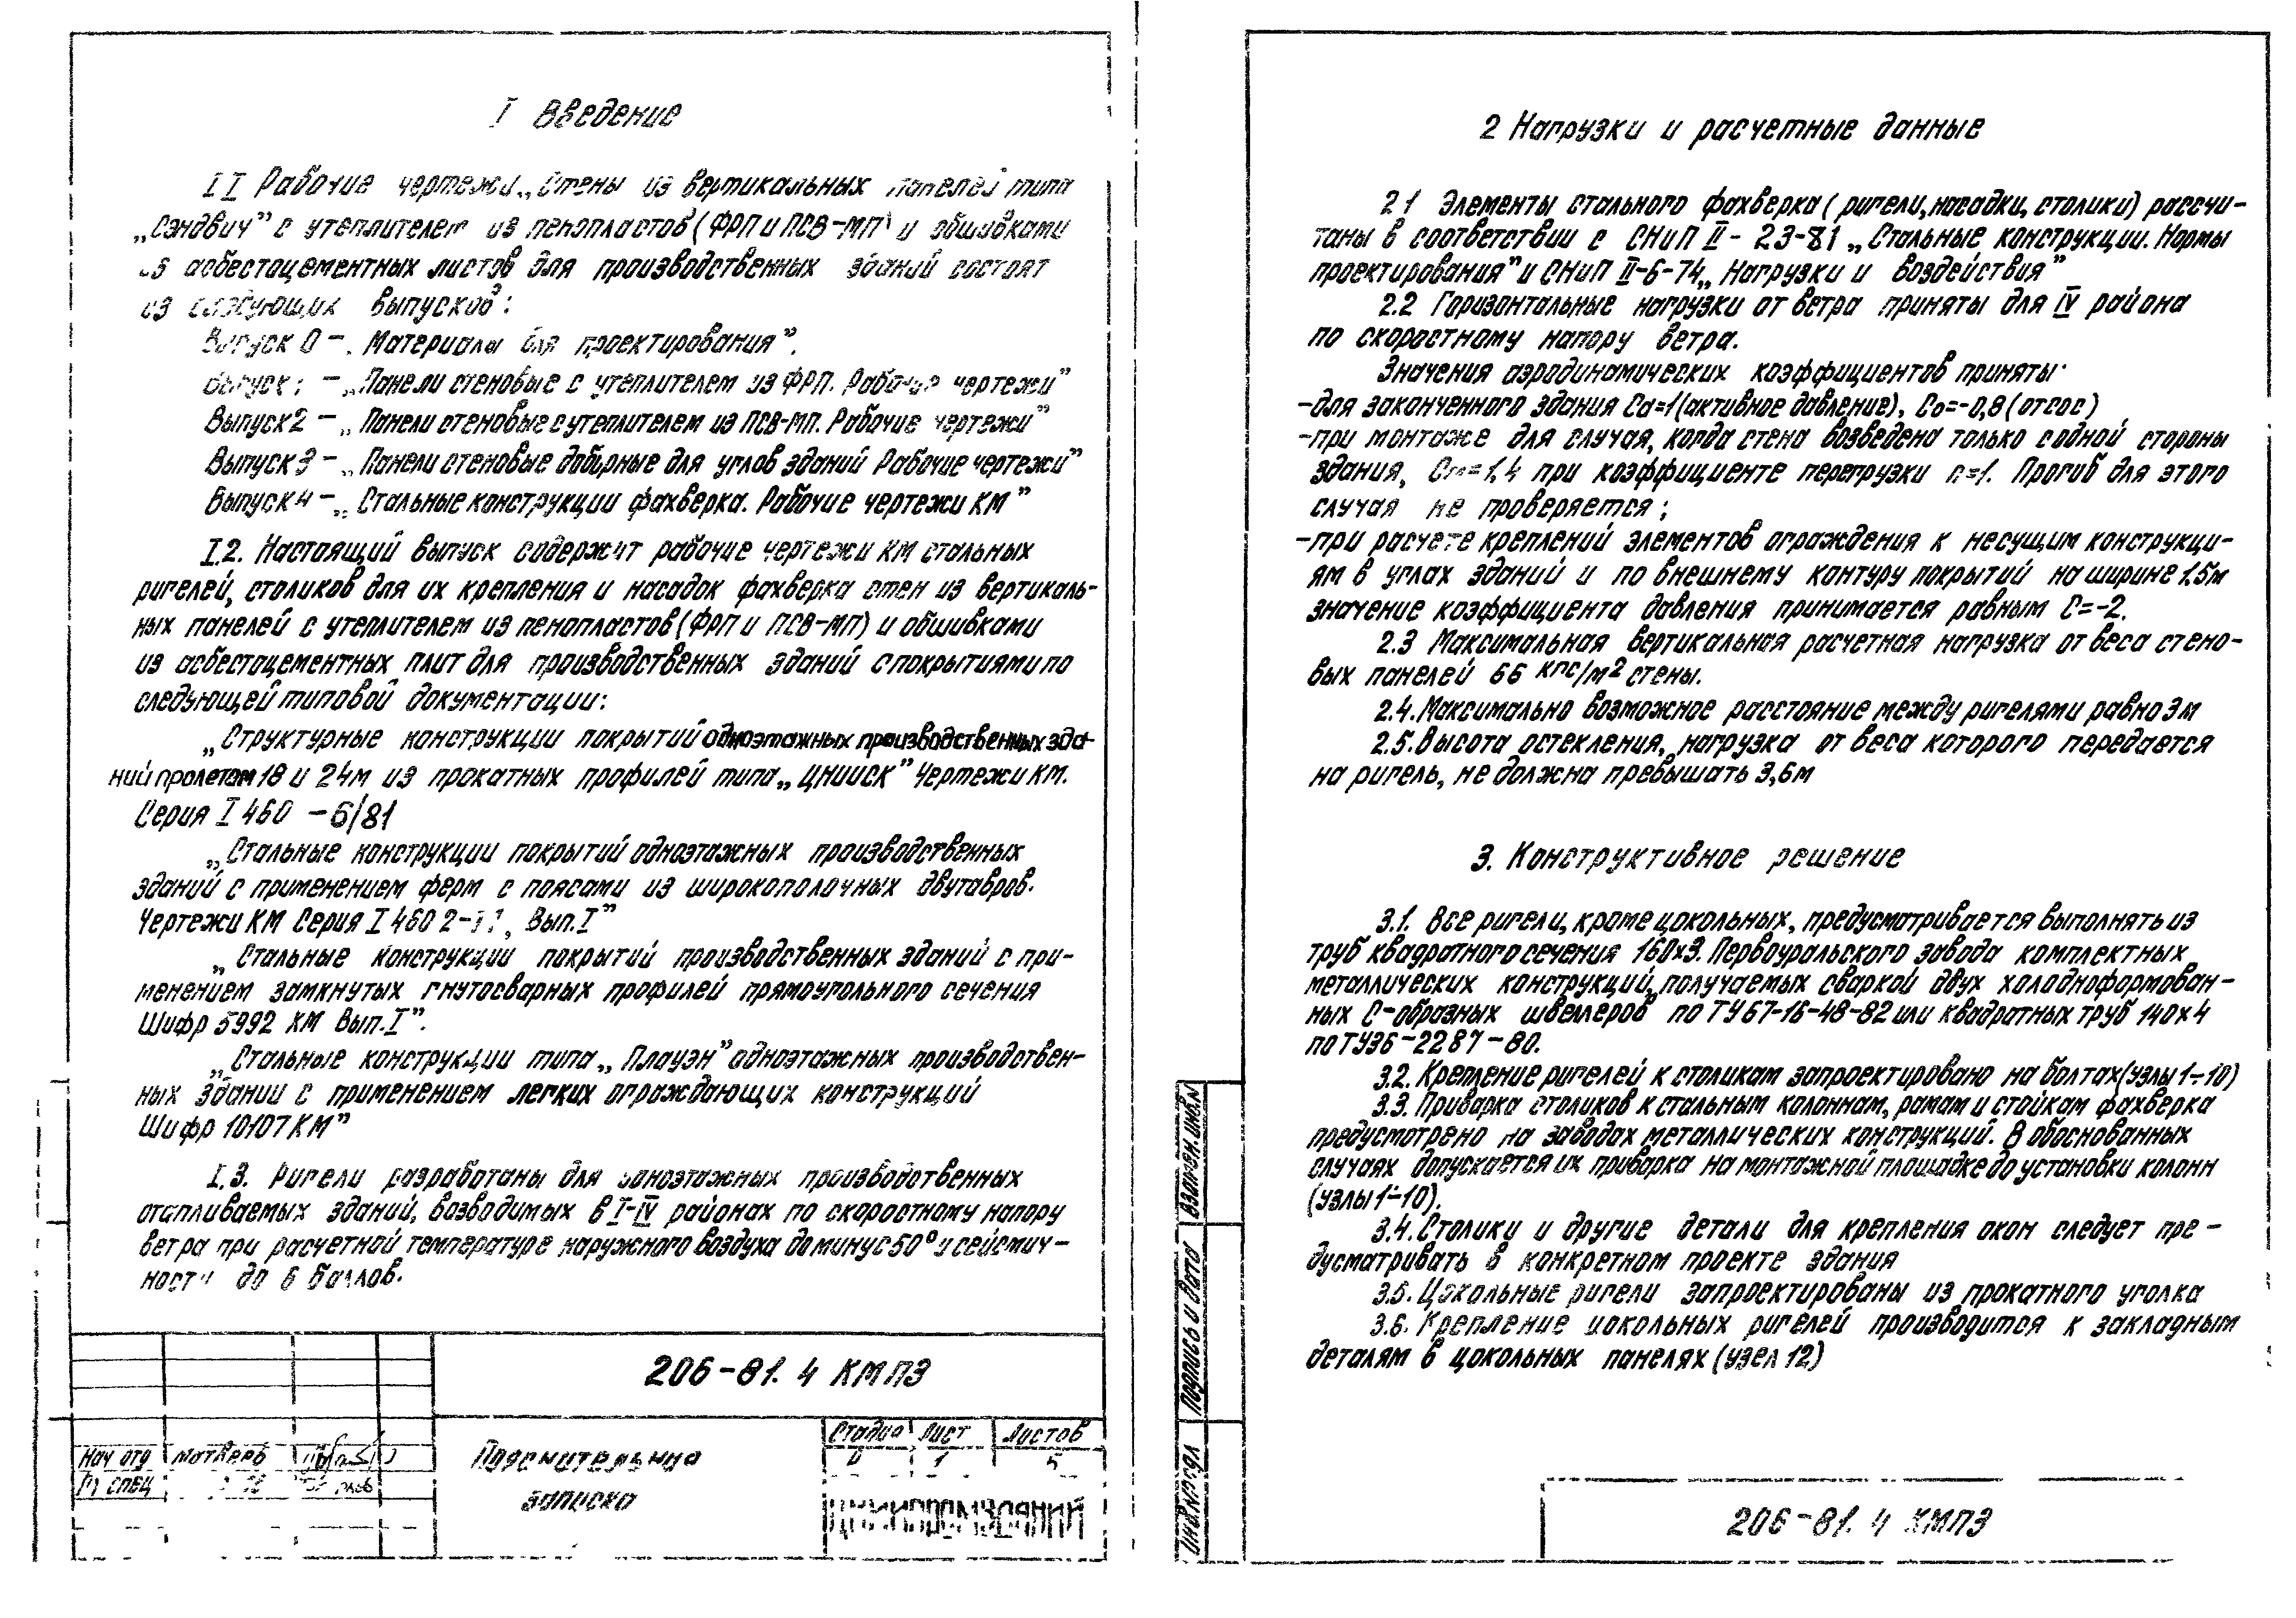 I Введение
I I Рабочие чертежи „Стены из вертикальных панелей типа
„Сэндвич” с утеплителем из пенопластов (ФРП и ПСВ-МП) и обшивками
из асбестоцементных листов для производственных зданий состоят
из следующих выпусков:
Выпуск 0 – „Материалы для проектирования”.
Выпуск 1 – „Панели стеновые с утеплителем из ФРП. Рабочие чертежи”
Выпуск 2 – „Панели стеновые с утеплителем из ПСВ-МП. Рабочие чертежи”
Выпуск 3 – „Панели стеновые доборные для углов зданий Рабочие чертежи”
Выпуск 4 – „Стальные конструкции фахверка. Рабочие чертежи КМ”
I.2. Настоящий выпуск содержит рабочие чертежи КМ стальных
ригелей, столиков для их крепления и насадок фахверка стен из вертикаль-
ных панелей с утеплителем из пенопластов (ФРП и ПСВ-МП) и обшивками
из асбестоцементных плит для производственных зданий с покрытиями по
следующей типовой документации:
„Структурные конструкции покрытий одноэтажных производственных зда-
ний пролетом 18 и 24м из прокатных профилей типа „ЦНИИСК” Чертежи КМ.
Серия I 460 – 6/81
„Стальные конструкции покрытий одноэтажных производственных
зданий с применением ферм с поясами из широкополочных двутавров.
Чертежи КМ Серия I 460 2- , Вып.I”
„Стальные конструкции покрытий производственных зданий с при-
менением замкнутых гнутосварных профилей прямоугольного сечения
Шифр 5992 КМ Вып.I”.
„Стальные конструкции типа „Плауэн” одноэтажных производствен-
ных зданий с применением легких ограждающих конструкций
Шифр 10107 КМ”
I.3. Ригели разработаны для одноэтажных производственных
отапливаемых зданий, возводимых в I-IV районах по скоростному напору
ветра при расчетной температуре наружного воздуха до минус 50° и сейсмич-
ности до 6 баллов.
206-81. 4 КМПЗ
Стадия Лист Листов
Р 1 5
Нач отд Матвеев
Гл спец
Пояснительная
записка
ЦНИИПРОМЗДАНИЙ
2 Нагрузки и расчетные данные
2 1 Элементы стального фахверка (ригели, насадки, столики) рассчи-
таны в соответствии с СНиП II - 23-81 „Стальные конструкции. Нормы
проектирования” и СНиП II-6-74 „Нагрузки и воздействия”
2.2 Горизонтальные нагрузки от ветра приняты для IV района
по скоростному напору ветра.
Значения аэродинамических коэффициентов приняты:
-для законченного здания Cа=1 (активное давление), Cо=-0,8 (отсос)
-при монтаже для случая, когда стена возведена только с одной стороны
здания, Cм=1,4 при коэффициенте перегрузки n=1. Прогиб для этого
случая не проверяется;
-при расчете креплений элементов ограждения к несущим конструкци-
ям в углах зданий и по внешнему контуру покрытий на ширине 1.5м
значение коэффициента давления принимается равным C=-2.
2.3 Максимальная вертикальная расчетная нагрузка от веса стено-
вых панелей 66 кгс/м² стены.
2.4. Максимально возможное расстояние между ригелями равно 3м
2.5. Высота остекления, нагрузка от веса которого передается
на ригель, не должна превышать 3,6м
3. Конструктивное решение
3.1. Все ригели, кроме цокольных, предусматривается выполнять из
труб квадратного сечения 160х3. Первоуральского завода комплектных
металлических конструкций, получаемых сваркой двух холодноформован-
ных С-образных швеллеров по ТУ 67-16-48-82 или квадратных труб 140х4
по ТУ36-2287-80.
3.2. Крепление ригелей к столикам запроектировано на болтах (узлы 1÷10)
3.3. Приварка столиков к стальным колоннам, рамам и стойкам фахверка
предусмотрено на заводах металлических конструкций. В обоснованных
случаях допускается их приварка на монтажной площадке до установки колонн
(узлы 1÷10).
3.4. Столики и другие детали для крепления окон следует пре-
дусматривать в конкретном проекте здания
3.5. Цокольные ригели запроектированы из прокатного уголка
3.6. Крепление цокольных ригелей производится к закладным
деталям в цокольных панелях (узел 12)
Взамен.инв.N
Подпись и дата
Инв.N подл
206-81. 4 КМПЗ